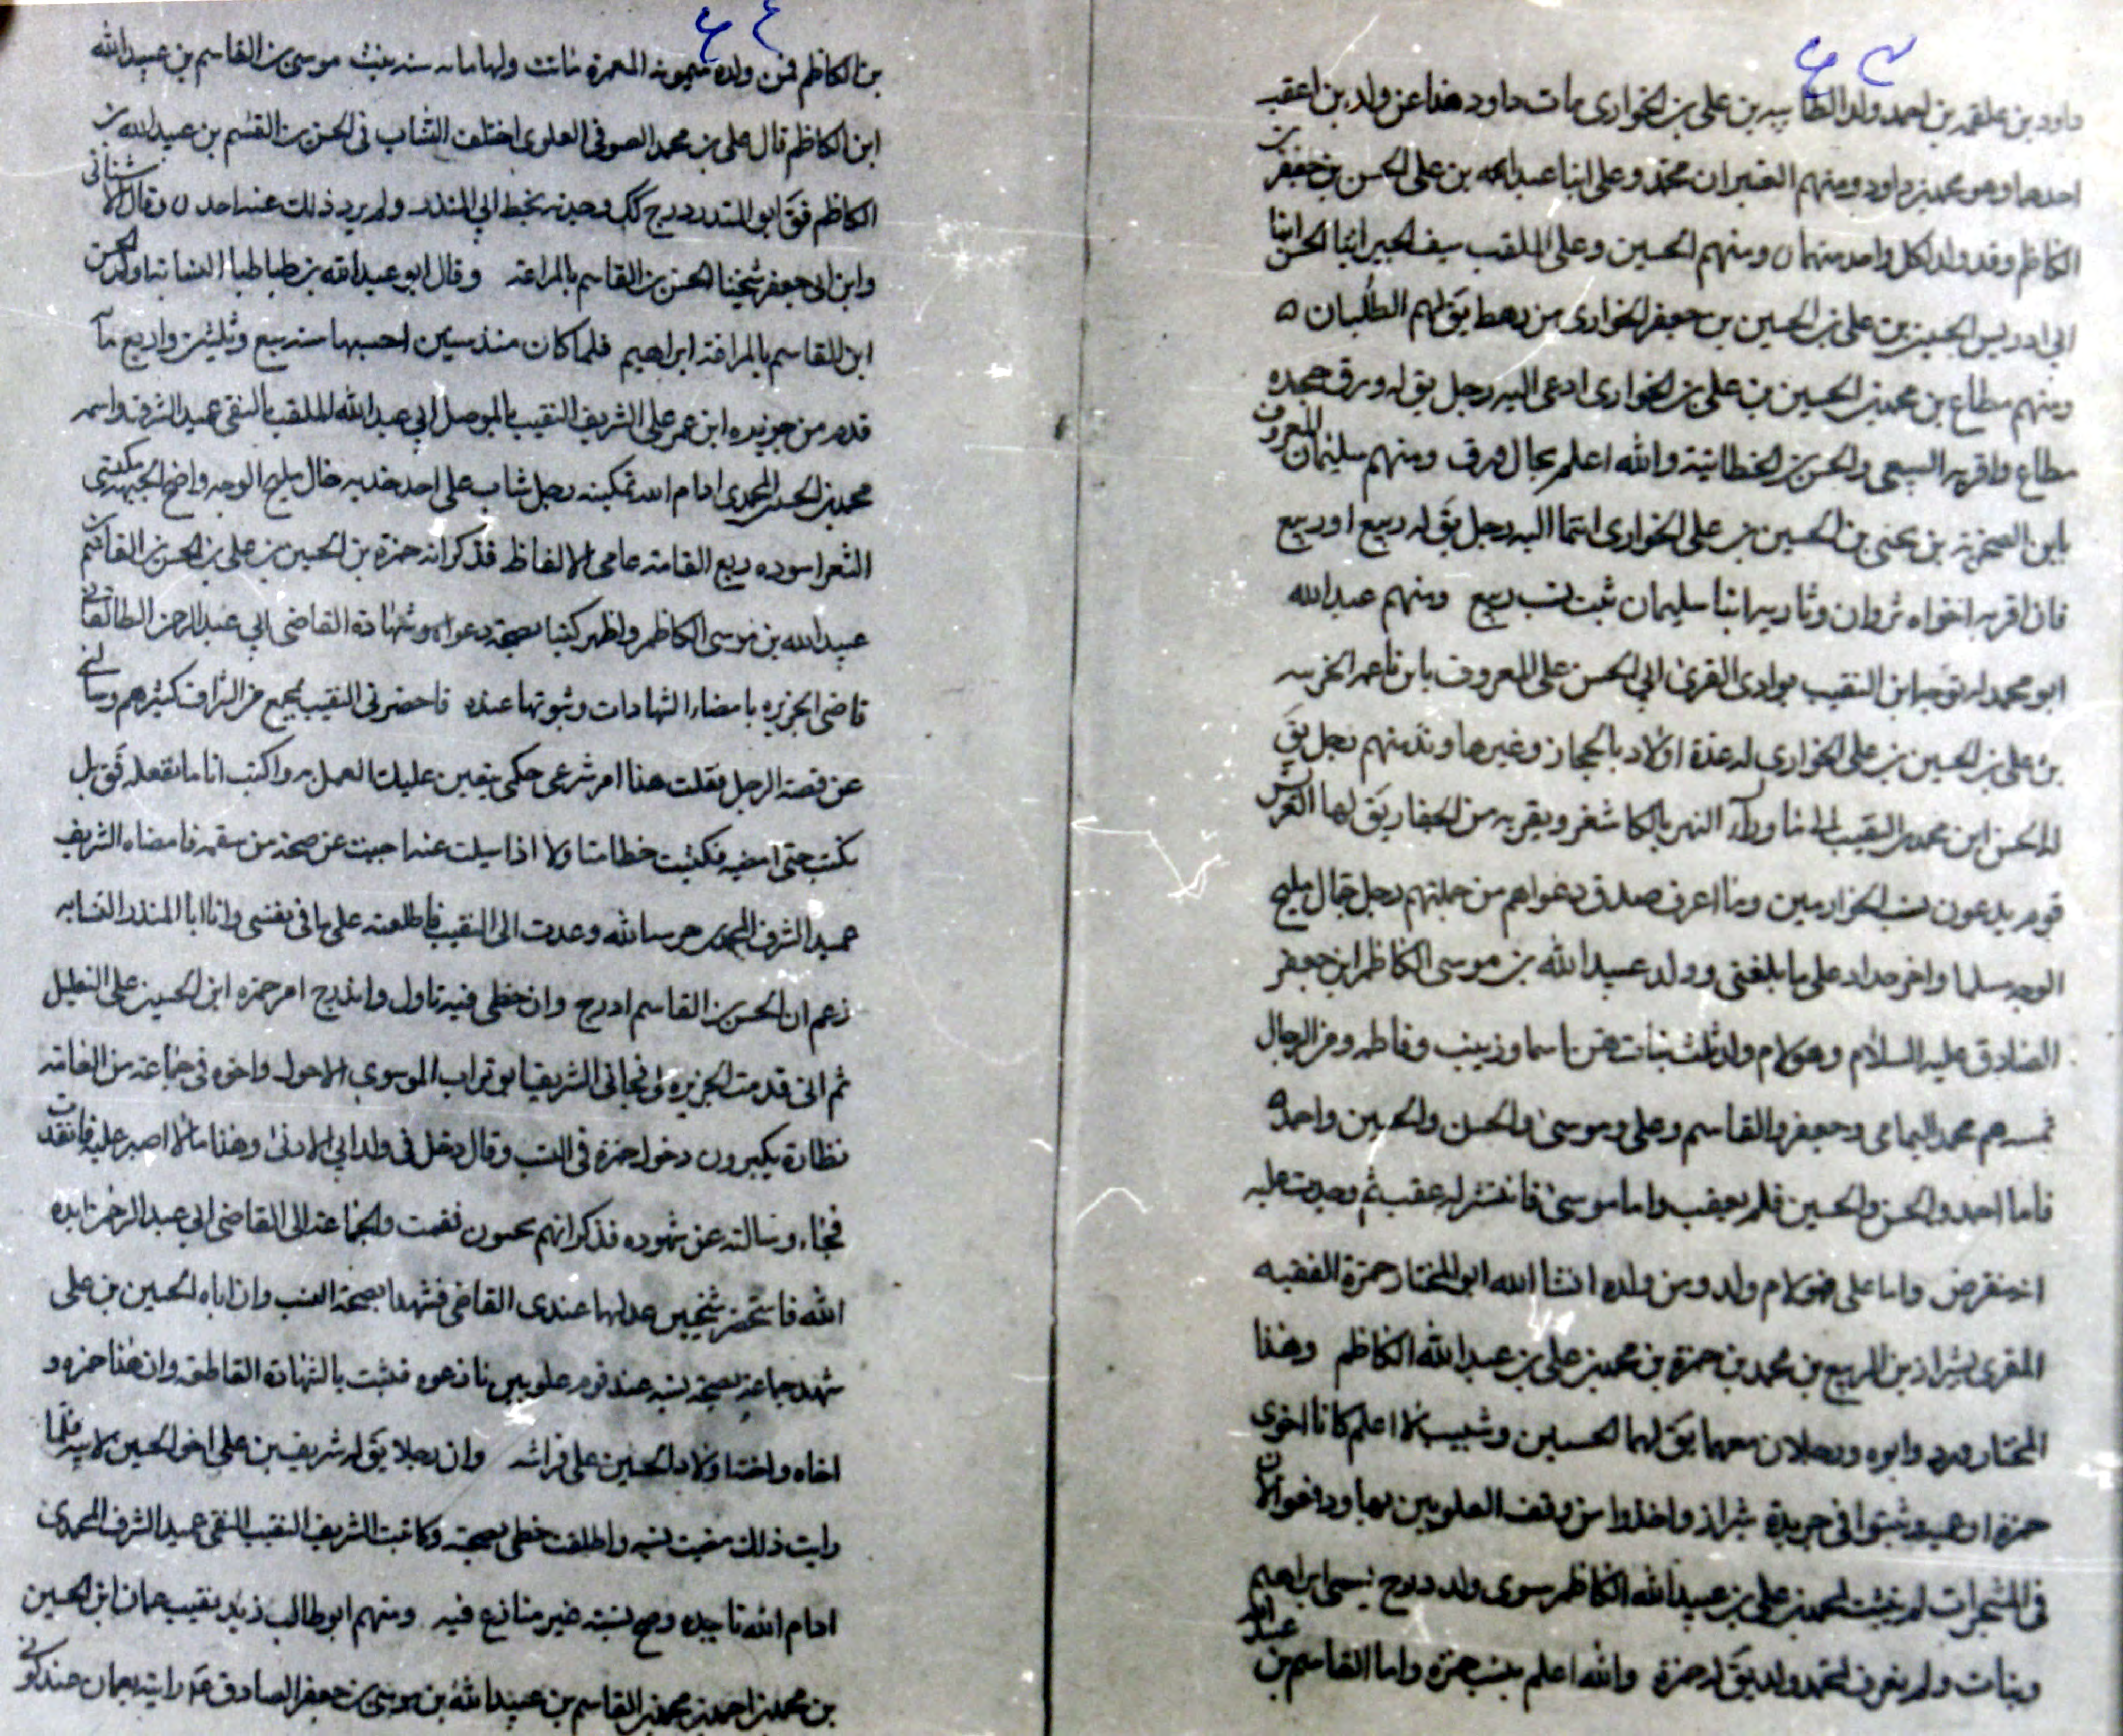 داود بن علقمه بن احمد ولد الطابيه بن على بن الخوارى مات داود هذا عن ولدين اعقب
احدهما وهو محمد بن داود ومنهم الفقيران محمد وعلى ابنا عبد الله بن على الحسن بن جعفر بن
الكاظم وقد ولد لكل واحد منهما ومنهم الحسين وعلى الملقب سيف الحير ابنا الحسن ابنا
ابى ادريس الحسين بن على بن الحسين بن جعفر الخوارى من رهط يق لهم الطلبان ه
ومنهم مطاع بن محمد بن الحسين بن على بن الخوارى ادعى اليه رجل يق له ورق جحده
مطاع واقر به السبيعى والحسن بن الخطابية والله اعلم بحال ورق ومنهم سليمان المعروف
بابن الصخرية بن يحيى بن الحسين بن على الخوارى انتما اليه رجل يق له ربيع او ربيع
فان اقر به اخواه ثروان وثاريه ابنا سليمان ثبت نسب ربيع ومنهم عبد الله
ابو محمد له توجه ابن النقيب بوادى القرى ابى الحسن على المعروف بابن ناعمر الخرسه
بن على بن الحسين بن على الخوارى له عدة اولاد بالحجاز وغيرها وند منهم رجل يق
له الحسن ابن محمد بن النقيب الى ما وراء النهر بالكاشغر وبقريه من الجفار يق لها العرش
قوم يدعون نسب الخوارمين وما اعرف صدق دعواهم من جملتهم رجل جمال مليح
الوجه سلما واخر حداد على ما بلغنى وولد عبيد الله بن موسى الكاظم ابن جعفر
الصادق عليه السلام وهو لام ولد ثلث بنات هن اسما وزينب وفاطمه ومن الرجال
ثمـ هم محمد اليمامى وجعفر والقاسم وعلى وموسى والحسن والحسين واحمد ه
فاما احمد والحسن والحسين فلم يعقب واما موسى فانتشر له عقب ثم وجدت عليه
انه منقرض واما على فهو لام ولد ومن ولده انشا الله ابو المختار حمزة الفقيه
المقرى بشيراز بن الربيع بن محمد بن حمزة بن محمد بن على بن عبد الله الكاظم وهذا
المختار ورد وابوه ورجلان معهما يق لهما الحسين وشبيب لا اعلم كانا اخوى
حمزة او عميه وثبتوا فى جريدة شيراز واخذوا من وقف العلويين بها ودفعوا لان
فى المشجرات لم يثبت لمحمد بن على بن عبيد الله الكاظم سوى ولد درج يسمى ابراهيم
وبنات ولم يعرف لمحمد ولد يق له حمزة والله اعلم بنسب حمزة واما القاسم بن عبيد الله
بن الكاظم فمن ولده ميمونه المعمرة ماتت ولها مايه سنه بنت موسى بن القاسم بن عبيد الله
ابن الكاظم قال على بن محمد الصوفى العلوى اختلف النساب فى الحسن بن القسم بن عبيد الله بن
الكاظم فق ابو المنذر درج كك وجدته بخط ابى المنذر ولم يرد ذلك عنه احد وقال الاشنانى
وابن ابى جعفر شيخنا الحسن بن القاسم بالمراغه وقال ابو عبد الله بن طباطبا النسابه اولد الحسن
ابن القاسم بالمراغه ابراهيم فلما كان منذ سنين احسبها سنه سبع وثلثين واربع مآ
قدم من جزيره ابن عمر على الشريف النقيب بالموصل ابى عبد الله الملقب بالتقى عميد الشرف واسمه
محمد بن الحسن المحمدى ادام الله تمكينه رجل شاب على احد خديه خال مليح الوجه واضح الجبهه سبتى
الشعر اسوده ربع القامه عامى الالفاظ فذكر انه حمزة بن الحسين بن على بن الحسن بن القاسم بن
عبيد الله بن موسى الكاظم واظهر كتبا بصحة دعواه وشهادة القاضى ابى عبد الرحمن الطالقانى
قاضى الجزيره بامضاء الشهادات وثبوتها عنده فاحضرنى النقيب بمجمع من الشراف كثيرهم وسالنى
عن قصة الرجل فقلت هذا امر شرعى حكمى يتعين عليك العمل به واكتب انا ما تفعله فق بل
تكتب حتى امضيه فكتبت خطا متاولا اذا سيلت عنه اجبت عن صحته من سقمه فامضاه الشريف
عميد الشرف المحمدى حرسه الله وعدت الى النقيب فاطلعته على ما فى نفسى وان ابا المنذر النسابه
زعم ان الحسن بن القاسم ادرج وان خطى فيه تاول واندرج امر حمزه ابن الحسين على التعليل
ثم انى قدمت الجزيره وفجانى الشريف ابو تراب الموسوى الاحول واخوه فى جماعة من العامه
نظارة يكبرون دخول حمزة فى النسب وقال دخل فى ولد ابى الادنى وهذا مالا اصبر عليه فانفدت
فجاء وسالته عن شهوده فذكر انهم يحبون فقمت والجماعة الى القاضى ابى عبد الرحمن ايده
الله فاستحضر شيخين عدلهما عندى القاضى فشهدا بصحة النسب وان اباه الحسين بن على
شهد جماعة بصحة نسبه عند قوم علويين نازعوه فثبت بالشهادة القاطعه وان هذا حمزه و
اخاه واخته اولاد الحسين على فراشه وان رجلا يق له شريف بن على اخو الحسين لابيه فلما
رايت ذلك مضيت نسبه واطلقت خطى بصحته وكاتبت الشريف النقيب التقى عميد الشرف المحمدى
ادام الله تاييده وصح نسبه غير منازع فيه ومنهم ابو طالب زيد نقيب عمان ابن الحسين
بن محمد بن احمد بن محمد بن القاسم بن عبيد الله بن موسى بن جعفر الصادق رايته بعمان عند كونى